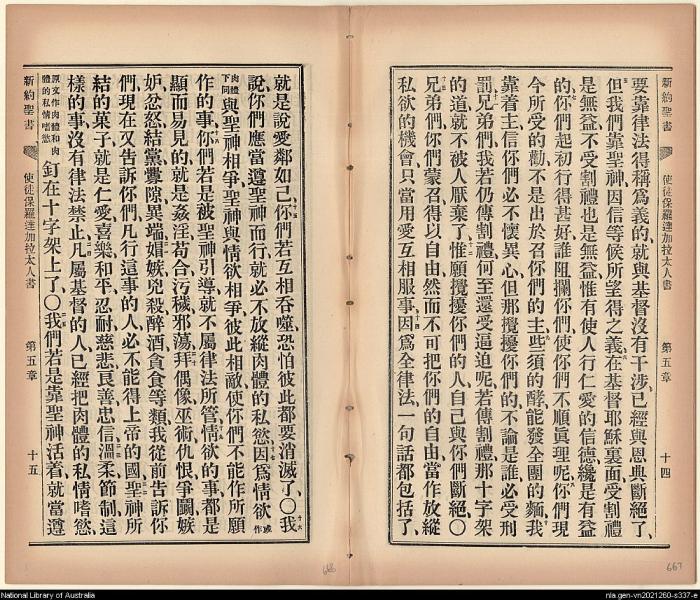 新約聖書 使徒保羅達加拉太人書 第五章 十四
要靠律法得稱爲義的、就與基督沒有干涉、已經與恩典斷絕了、
但我們靠聖神、因信等候所望得之義、在基督耶穌裏面受割禮
是無益、不受割禮也是無益、惟有使人行仁愛的信德纔是有益
的、你們起初行得甚好、誰阻攔你們、使你們不順眞理呢、你們現
今所受的勸、不是出於召你們的主、些須的酵能發全團的麵、我
靠着主信你們必不懷異心、但那攪擾你們的、不論是誰、必受刑
罰、兄弟們、我若仍傳割禮、何至還受逼迫呢、若傳割禮、那十字架
的道、就不被人厭棄了、惟願攪擾你們的人、自己與你們斷絕、〇
兄弟們、你們蒙召得以自由、然而不可把你們的自由、當作放縱
私欲的機會、只當用愛互相服事、因爲全律法、一句話都包括了、
就是說愛鄰如己、你們若互相吞噬、恐怕彼此都要消滅了、〇我
說你們應當遵聖神而行、就必不放縱肉體的私慾、因爲情欲或作
肉體下同與聖神相爭、聖神與情欲相爭、彼此相敵、使你們不能作所願
作的事、你們若是被聖神引導、就不屬律法所管、情欲的事都是
顯而易見的、就是姦淫、苟合、污穢、邪蕩、拜偶像、巫術、仇恨、爭鬭、嫉
妒、忿怒、結黨、釁隙、異端、媢嫉、兇殺、醉酒、貪食等類、我從前告訴你
們、現在又告訴你們、凡行這事的人、必不能得上帝的國、聖神所
結的菓子、就是仁愛、喜樂、和平、忍耐、慈悲、良善、忠信、溫柔、節制、這
樣的事、沒有律法禁止、凡屬基督的人、已經把肉體的私情嗜慾、
原文作肉體和肉體的私情嗜慾釘在十字架上了、〇我們若是靠聖神活着、就當遵
新約聖書 使徒保羅達加拉太人書 第五章 十五
668
667
National Library of Australia
nla.gen-vn2021260-s337-e